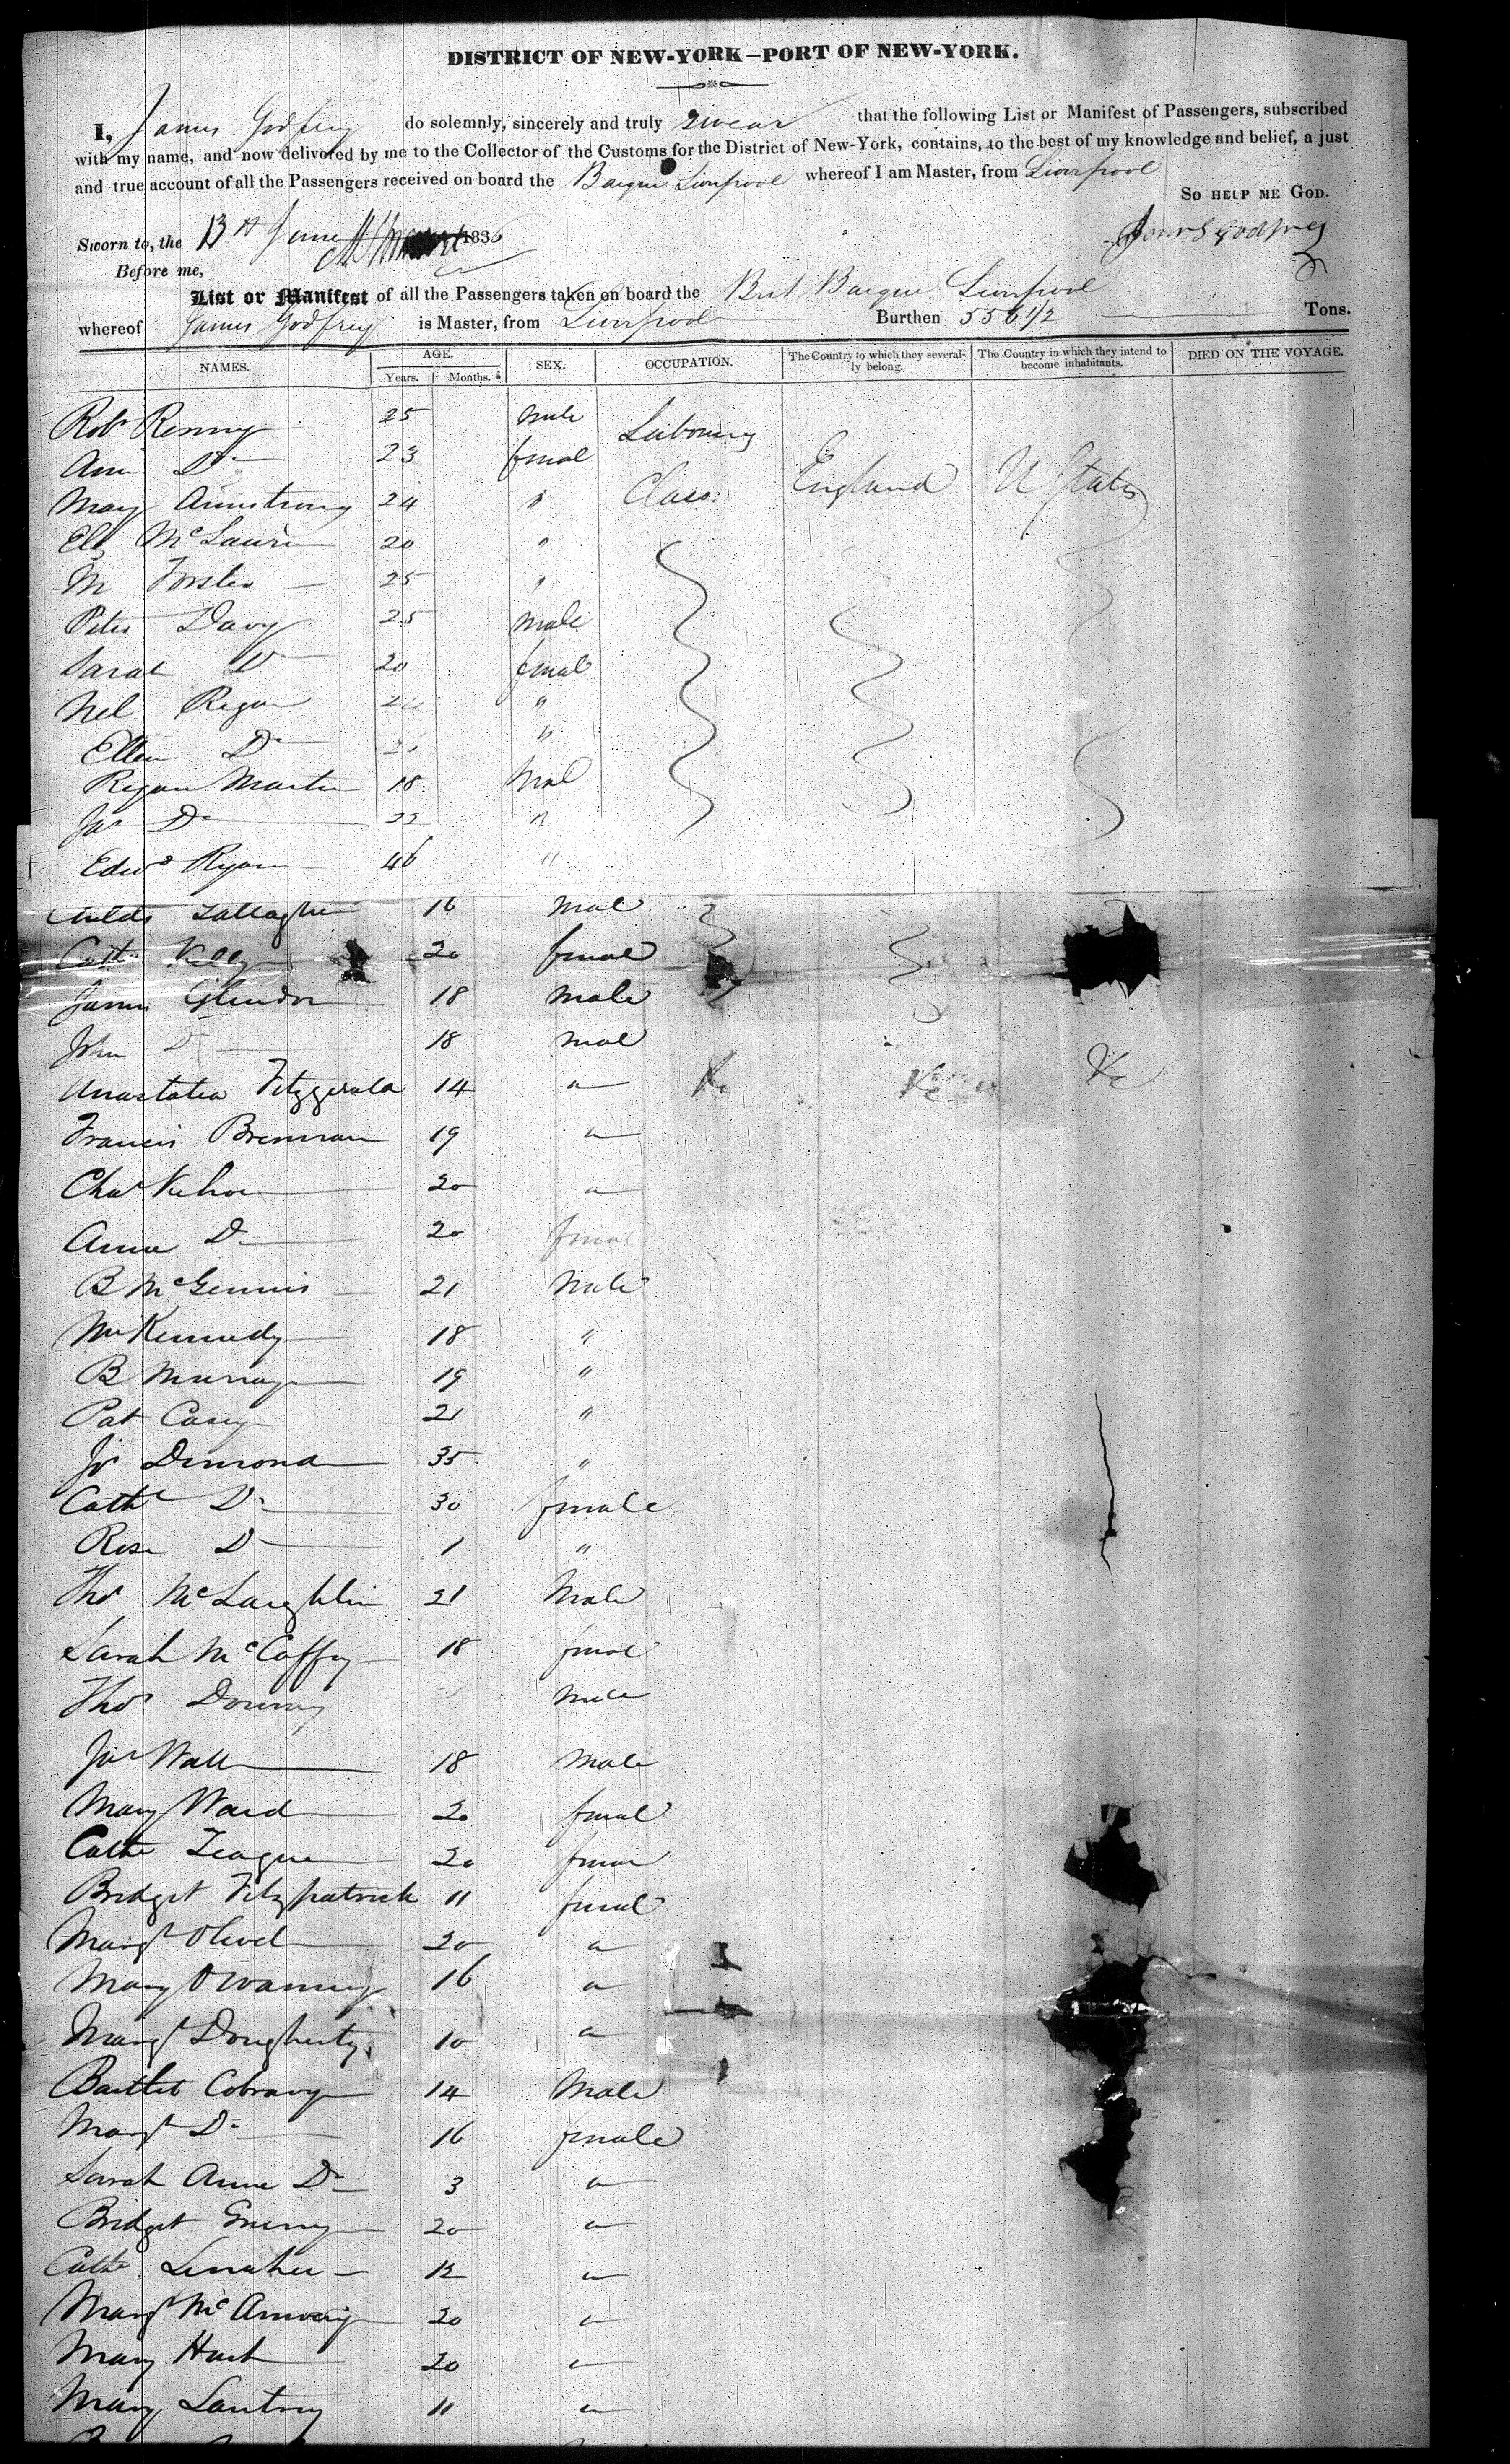 DISTRICT OF NEW-YORK—PORT OF NEW-YORK.
I, James Godfrey do solemnly, sincerely and truly swear that the following List or Manifest of Passengers, subscribed
with my name, and now delivered by me to the Collector of the Customs for the District of New-York, contains, to the best of my knowledge and belief, a just
and true account of all the Passengers received on board the Barque Liverpool whereof I am Master, from Liverpool
SO HELP ME GOD.
Sworn to, the 13th June 1836 James Godfrey
Before me,
List or Manifest of all the Passengers taken on board the Brit Barque Liverpool
whereof James Godfrey is Master, from Liverpool Burthen 556 1/2 Tons.
NAMES. AGE. Years. Months. SEX. OCCUPATION. The Country to which they severally belong. The Country in which they intend to become inhabitants. DIED ON THE VOYAGE.
Robt Renny 25 male Labouring
Ann Do 23 femal
Mary Armstrong 24 " Class England U States
Elz McLaurin 20 "
M Forster 25 "
Peter Davy 25 male
Sarah Do 20 femal
Nel Regan "
Ellen Do "
Regan Martin 18 Mal
Jas Do 22 "
Edwd Ryan 46 "
Gallagher 16 Mal
Cath Kelly 20 femal
James Glendon 18 Male
John Do 18 mal
Anastatia Fitzgerald 14 " &c &c &c
Francis Brennan 19 "
Chas Kehoe 20 "
Anne Do 20 femal
B McGennis 21 Male
Wm Kennedy 18 "
B Murray 19 "
Pat Casey 21 "
Js Dimond 35 "
Cathe Do 30 female
Rose Do 1 "
Thos McLaughlin 21 Male
Sarah McCaffry 18 femal
Thos Downy male
Jas Wall 18 Male
Mary Ward 20 femal
Cath Teague 20 femal
Bridget Fitzpatrick 11 femal
Margt Olivel 20 "
Mary 16 "
Margt Dougherty 10 "
Bartlet 14 Male
Margt Do 16 female
Sarah Anne Do 3 "
Bridget 20 "
Cathe Lenaher 12 "
Margt 20 "
Mary Hart 20 "
Mary Lantry 11 "